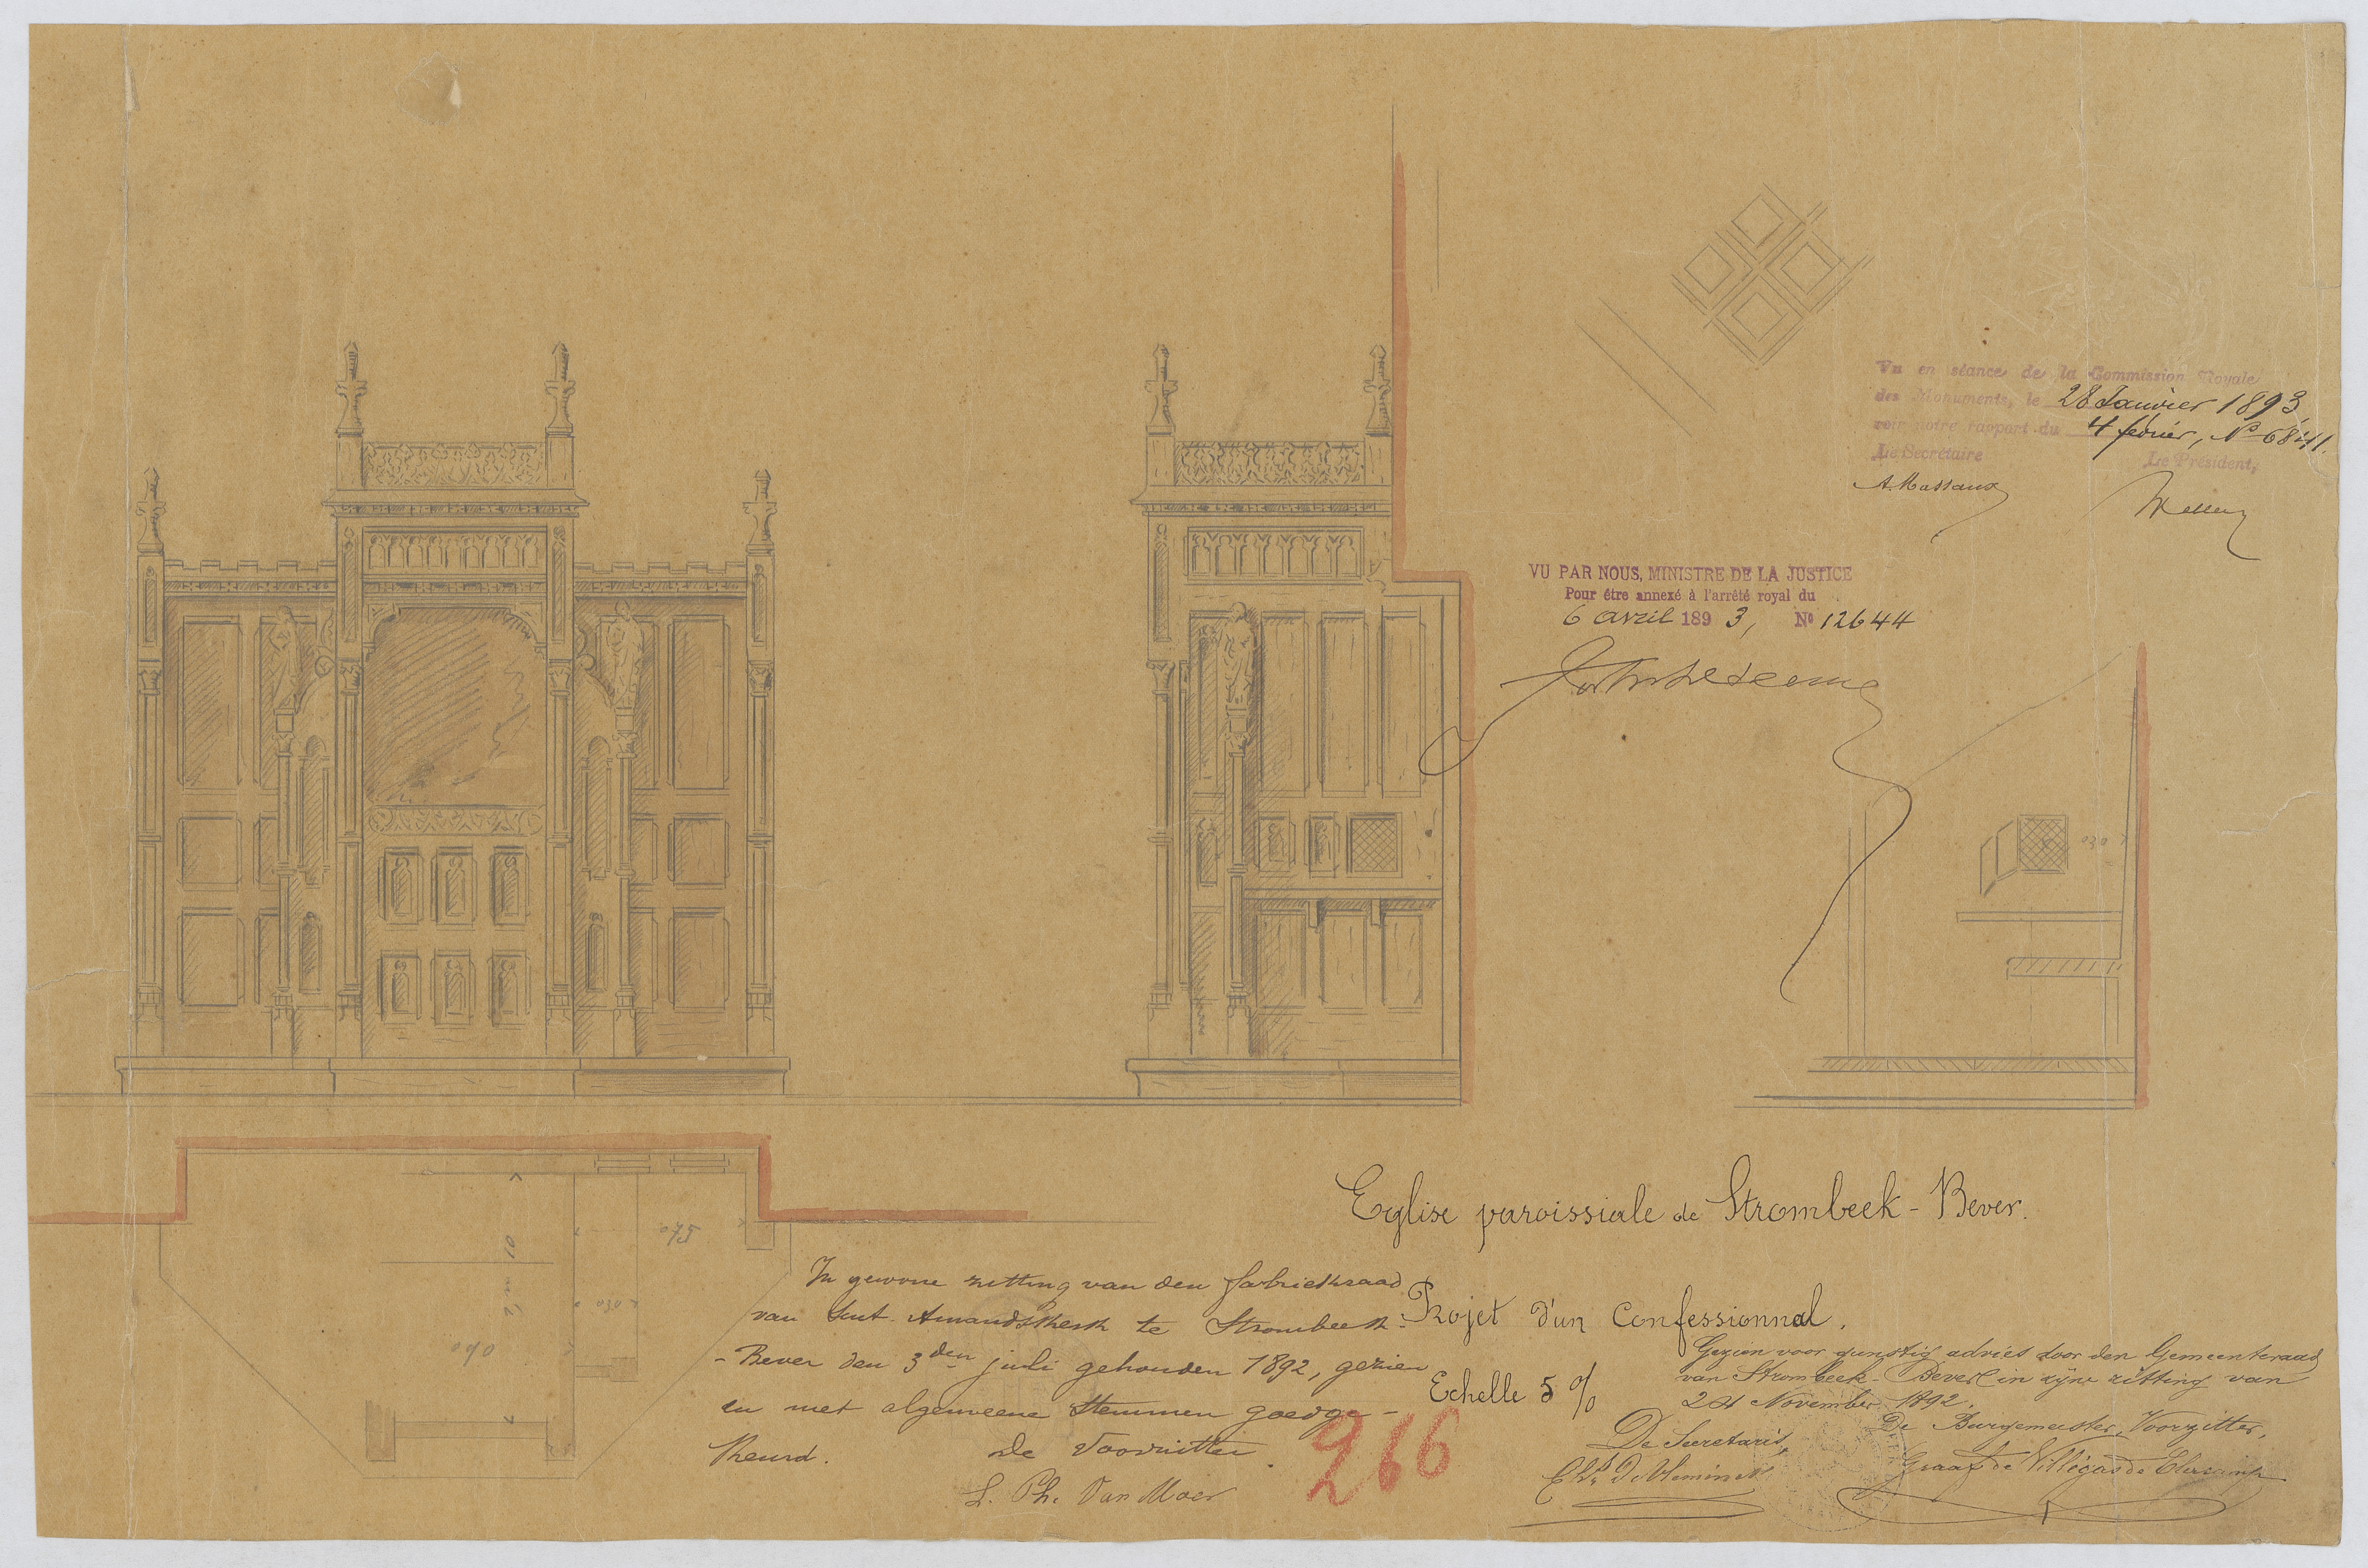 Vu en séance de la Commission Royale
des Monuments, le 28 Janvier 1893,
voir notre rapport du 4 février, N° 6841.
Le Secrétaire Le Président,
A. Massaux
VU PAR NOUS, MINISTRE DE LA JUSTICE
Pour être annexé à l'arrêté royal du
6 avril 1893, N° 12644
030
Eglise paroissiale de Strombeek-Bever.
Projet d'un Confessionnal.
Echelle 5 %
075
10
030
090
In gewone zitting van den fabriekraad
van Sint Amandskerk te Strombeek-
-Bever den 3den juli gehouden 1892, gezien
en met algemeene stemmen goedge-
keurd. De Voorzitter.
L. Ph. Van Moer
266
Gezien voor gunstig advies door den Gemeenteraad
van Strombeek-Bever in zijne zitting van
24 November 1892.
De Secretaris, De Burgemeester, Voorzitter,
Graaf de Villegas de Clercamp